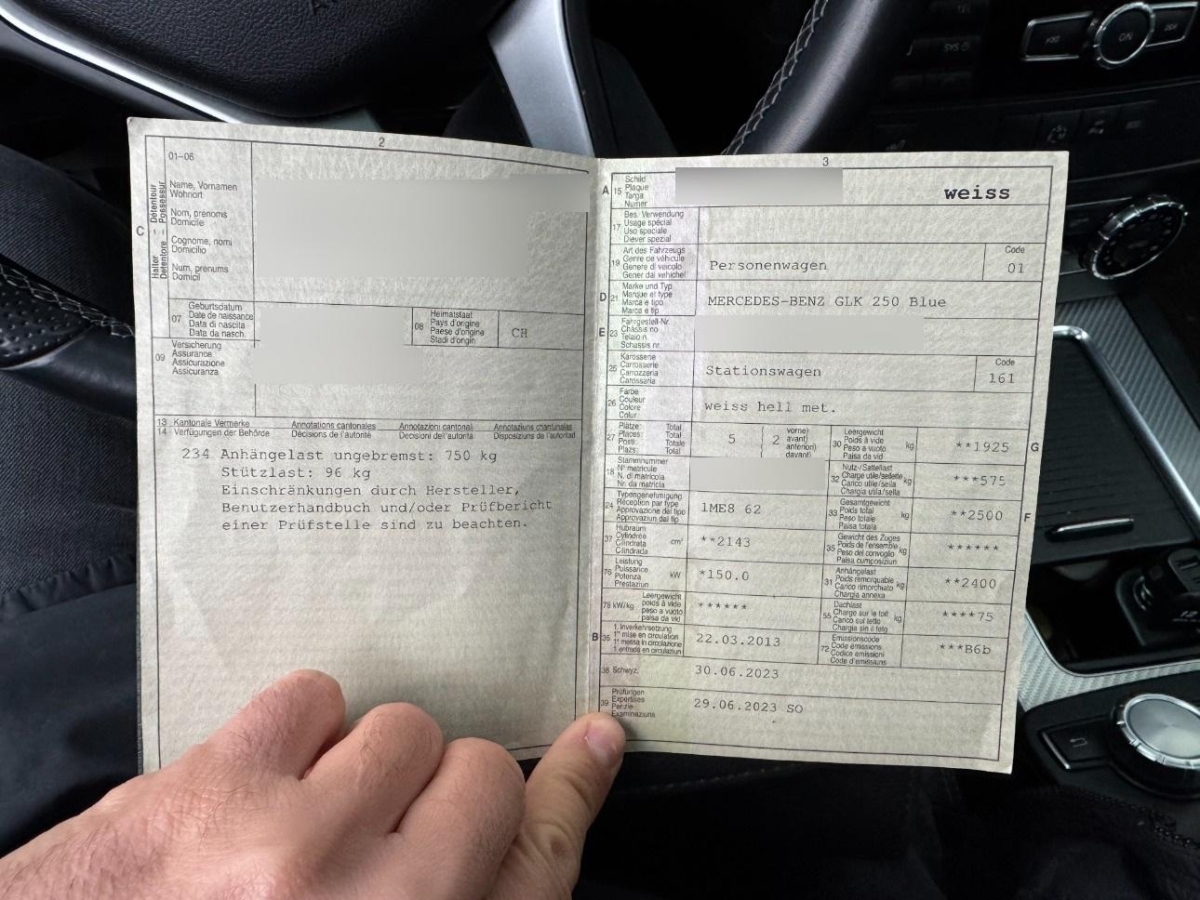 2
01-06
C
Halter - Détenteur
Detentore - Possessur
Name, Vornamen
Wohnort
Nom, prénoms
Domicile
Cognome, nomi
Domicilio
Num, prenums
Domicil
07
Geburtsdatum
Date de naissance
Data di nascita
Data da nasch.
08
Heimatstaat
Pays d'origine
Paese d'origine
Stadi d'origin
CH
09
Versicherung
Assurance
Assicurazione
Assicuranza
13 Kantonale Vermerke Annotations cantonales Annotazioni cantonali Annotaziuns chantunalas
14 Verfügungen der Behörde Décisions de l'autorité Decisioni dell'autorità Disposiziuns da l'autoritad
234 Anhängelast ungebremst: 750 kg
Stützlast: 96 kg
Einschränkungen durch Hersteller,
Benutzerhandbuch und/oder Prüfbericht
einer Prüfstelle sind zu beachten.
3
A 15
Schild
Plaque
Targa
Numer
weiss
17
Bes. Verwendung
Usage spécial
Uso speciale
Diever spezial
19
Art des Fahrzeugs
Genre de véhicule
Genere di veicolo
Gener dal vehichel
Personenwagen
Code
01
D 21
Marke und Typ
Marque et type
Marca e tipo
Marca e tip
MERCEDES-BENZ GLK 250 Blue
E 23
Fahrgestell-Nr.
Châssis no
Telaio n.
Schassis nr.
25
Karosserie
Carrosserie
Carrozzeria
Carossaria
Stationswagen
Code
161
26
Farbe
Couleur
Colore
Colur
weiss hell met.
27
Plätze: Total
Places: Total
Posti: Totale
Plazs: Total
5
2
vorne)
avant)
anteriori)
davant)
30
Leergewicht
Poids à vide
Peso a vuoto
Paisa da vid
kg
**1925
G
18
Stammnummer
N° matricule
N. di matricola
Nr. da matricla
32
Nutz-/Sattellast
Charge utile/sellette
Carico utile/sella
Chargia utila/sella
***575
24
Typengenehmigung
Réception par type
Approvazione del tipo
Approvaziun dal tip
1ME8 62
33
Gesamtgewicht
Poids total
Peso totale
Paisa totala
kg
**2500
F
37
Hubraum
Cylindrée
Cilindrata
Cilindrada
cm³
**2143
35
Gewicht des Zuges
Poids de l'ensemble
Peso del convoglio
Paisa cumposiziun
kg
******
76
Leistung
Puissance
Potenza
Prestaziun
kW
*150.0
31
Anhängelast
Poids remorquable
Carico rimorchiato
Chargia annexa
kg
**2400
78 kW/kg
Leergewicht
poids à vide
peso a vuoto
paisa da vid
******
55
Dachlast
Charge sur le toit
Carico sul tetto
Chargia sin il tetg
kg
****75
B 36
1. Inverkehrsetzung
1re mise en circulation
1a messa in circolazione
1. entrada en circulaziun
22.03.2013
72
Emissionscode
Code émissions
Codice emissioni
Code d'emissiuns
***B6b
38 Schwyz,
30.06.2023
39
Prüfungen
Expertises
Perizie
Examinaziuns
29.06.2023 SO
SYS
ON